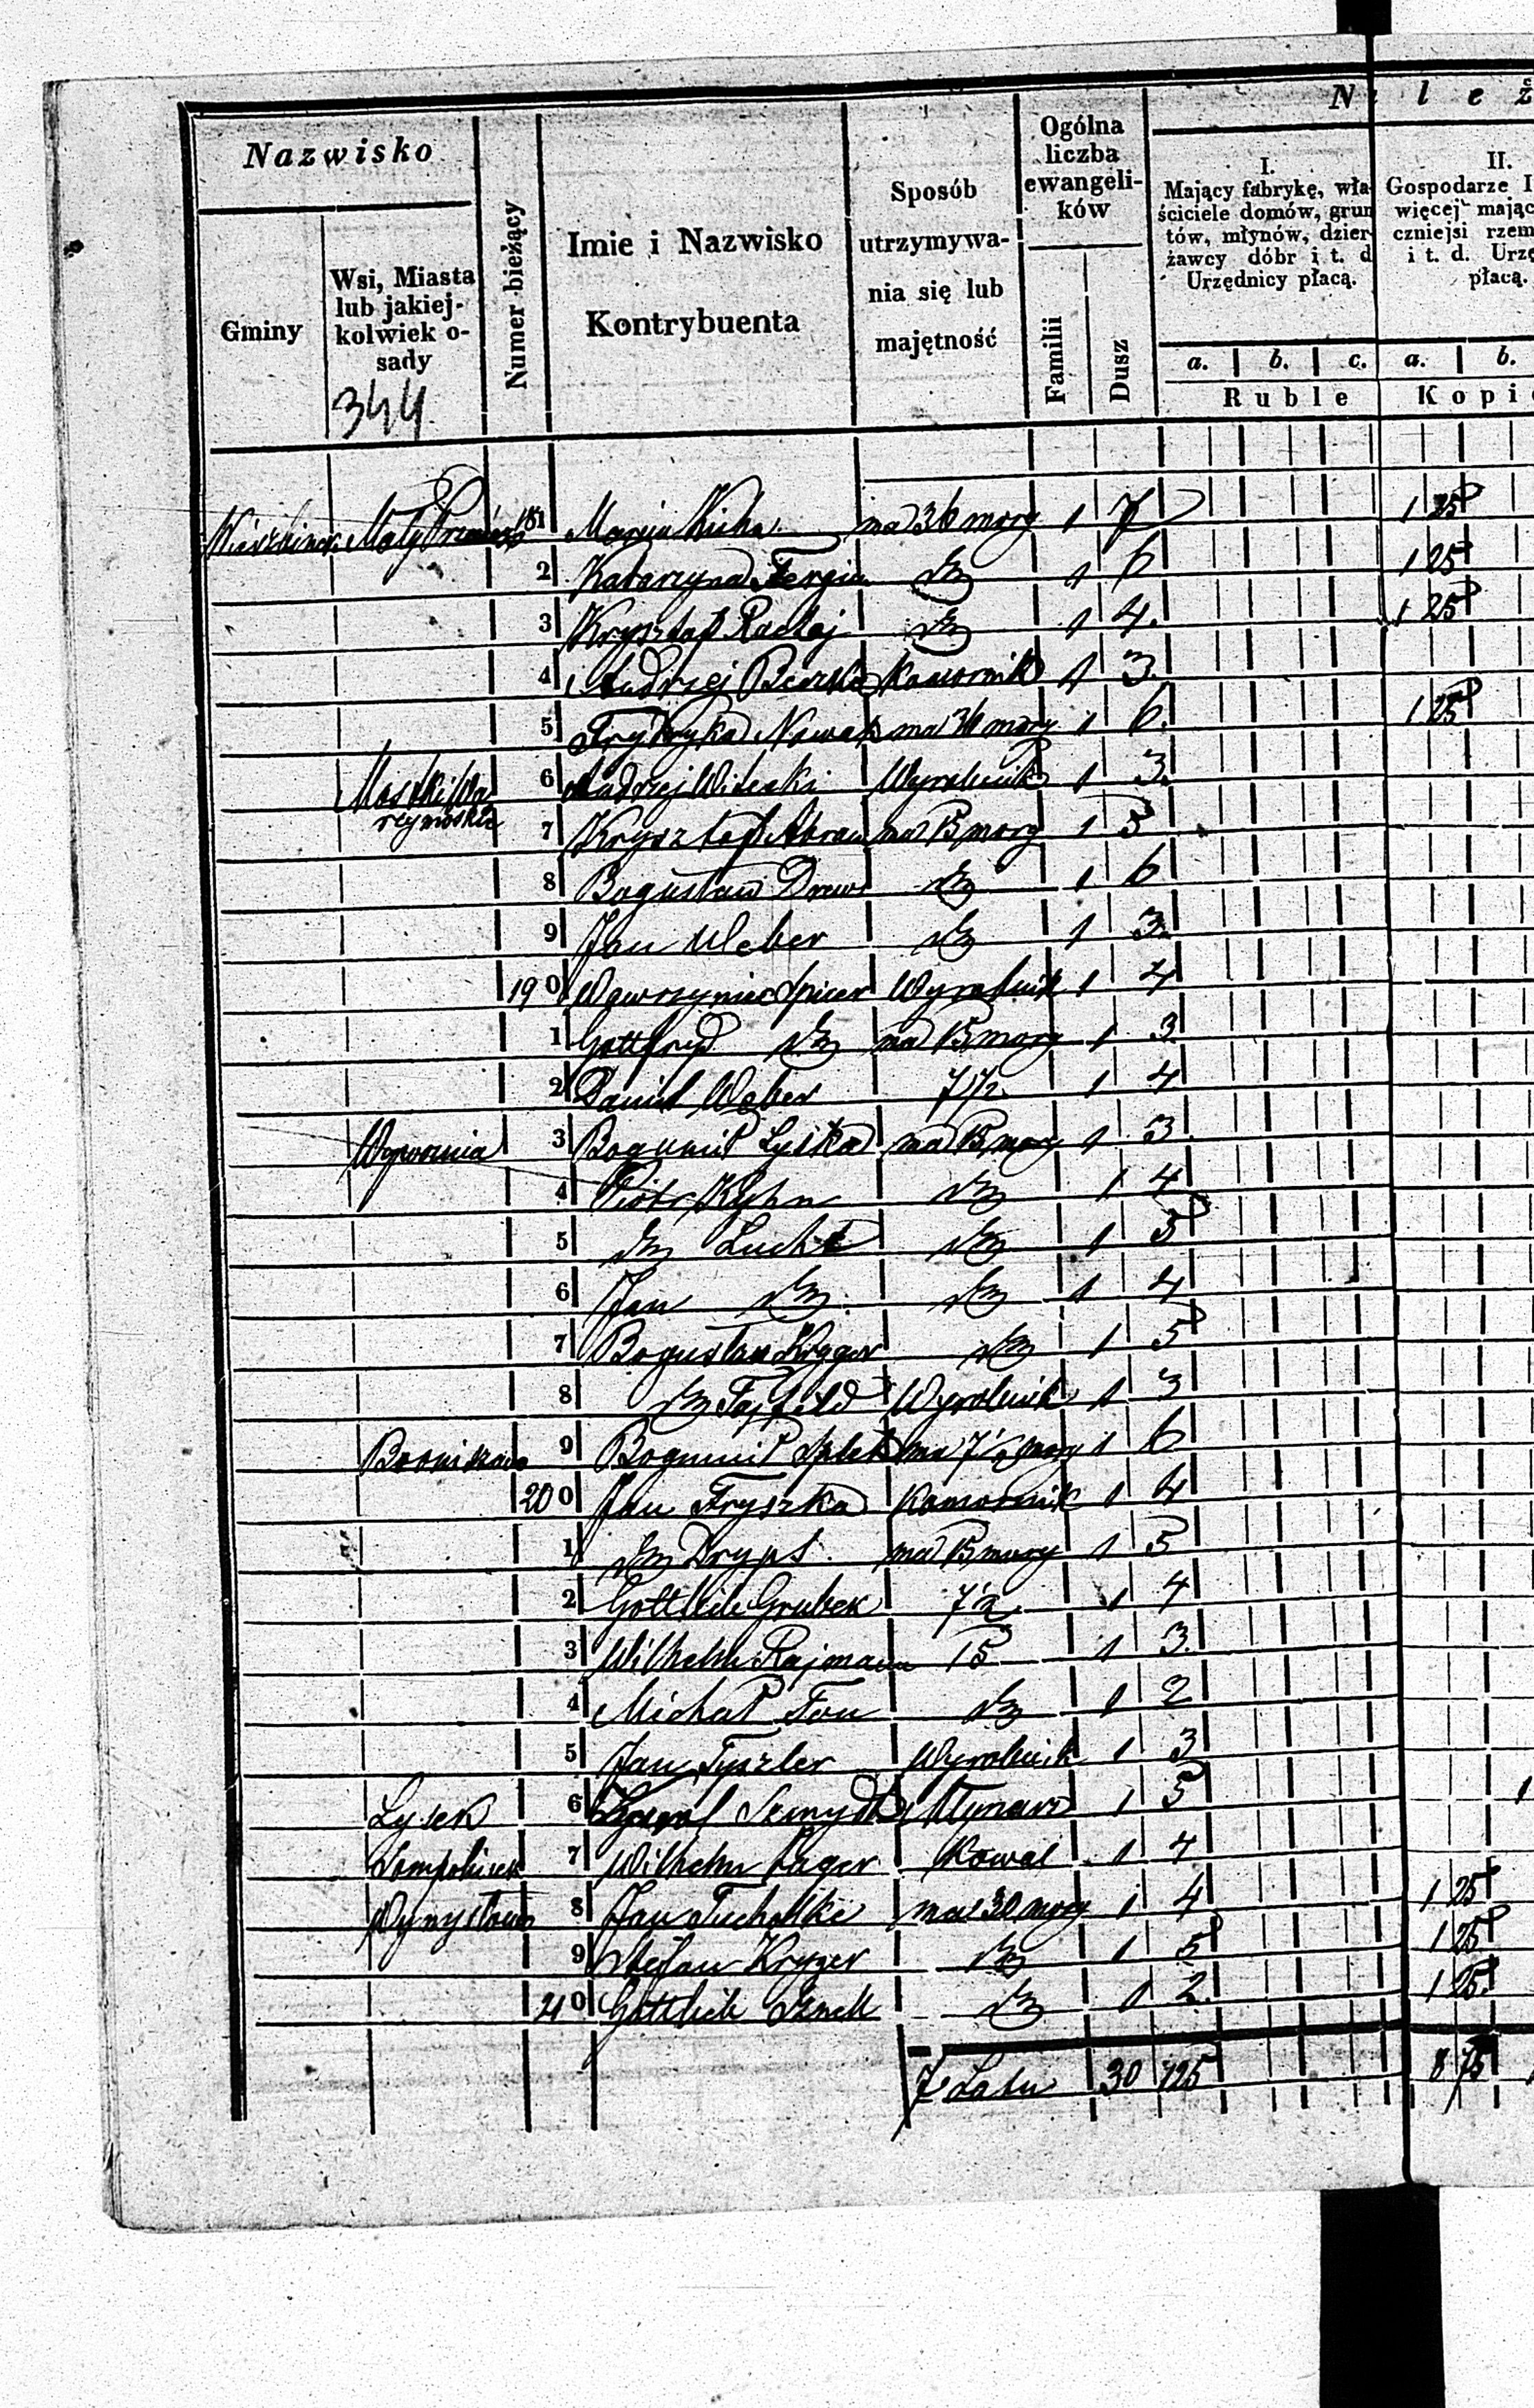 N a l e ż
Nazwisko
Gminy
Wsi, Miasta lub jakiej-kolwiek o-sady
344
Numer bieżący
Imie i Nazwisko Kontrybuenta
Sposób utrzymywa-nia się lub majętność
Ogólna liczba ewangeli-ków
Familii
Dusz
I.
Mający fabrykę, wła-
ściciele domów, grun
tów, młynów, dzier-
żawcy dóbr i t. d
Urzędnicy płacą.
II.
Gospodarze I
więcej mając
czniejsi rzem
i t. d. Urzę
płacą.
a. b. c. a. b.
Ruble Kopie
181 Marcin Kicha ma 36 morg 1 7 1 25
2 Katarzyna Fergin dto 1 6 1 25
3 Krysztof Rachaj dto 1 4. 1 25
4 Andrzej komornik 1 3.
5 Frydryka Nowak ma 36 morg 1 6. 1 25
6 Andrzej Witecki Wyrobnik 1 3.
7 Krysztof Abram ma 15 morg 1 5
8 Bogusław Drews dto 1 6
9 Jan Weber dto 1 3.
190 Wawrzyniec Spicer Wyrobnik 1 4
1 Gottfryd dto ma 15 morg 1 3
2 Daniel Weber 7 1/2 1 4
3 Bogumił Lyska ma 15 morg 1 3.
4 Piotr Kyhn dto 1 4
5 dto Lucht dto 1 5
6 Jan dto dto 1 4
7 Bogusław Kryger dto 1 5
8 dto Fajfeld Wyrobnik 1 3
9 Bogumił Splet ma 7 1/2 morg 1 6
200 Jan Fryszka Komornik 1 4
1 dto Dryps. ma 15 morg 1 5
2 Gottlieb Grubek 7 1/2 1 4
3 Wilhelm Rajmann 15 1 3.
4 Michał Fon dto 1 2
5 Jan Tyszler Wyrobnik 1 3
Lysek 6 Karol Szmydt Młynarz 1 5 1
7 Wilhelm Pager Kowal 1 4
Wymysłowo 8 Jan Tuchelke ma 30 morg 1 4 1 25
9 Stefan Kryger dto 1 5 1 25
210 Gottlieb dto 1 2. 1 25
Latu 30 125 8 75